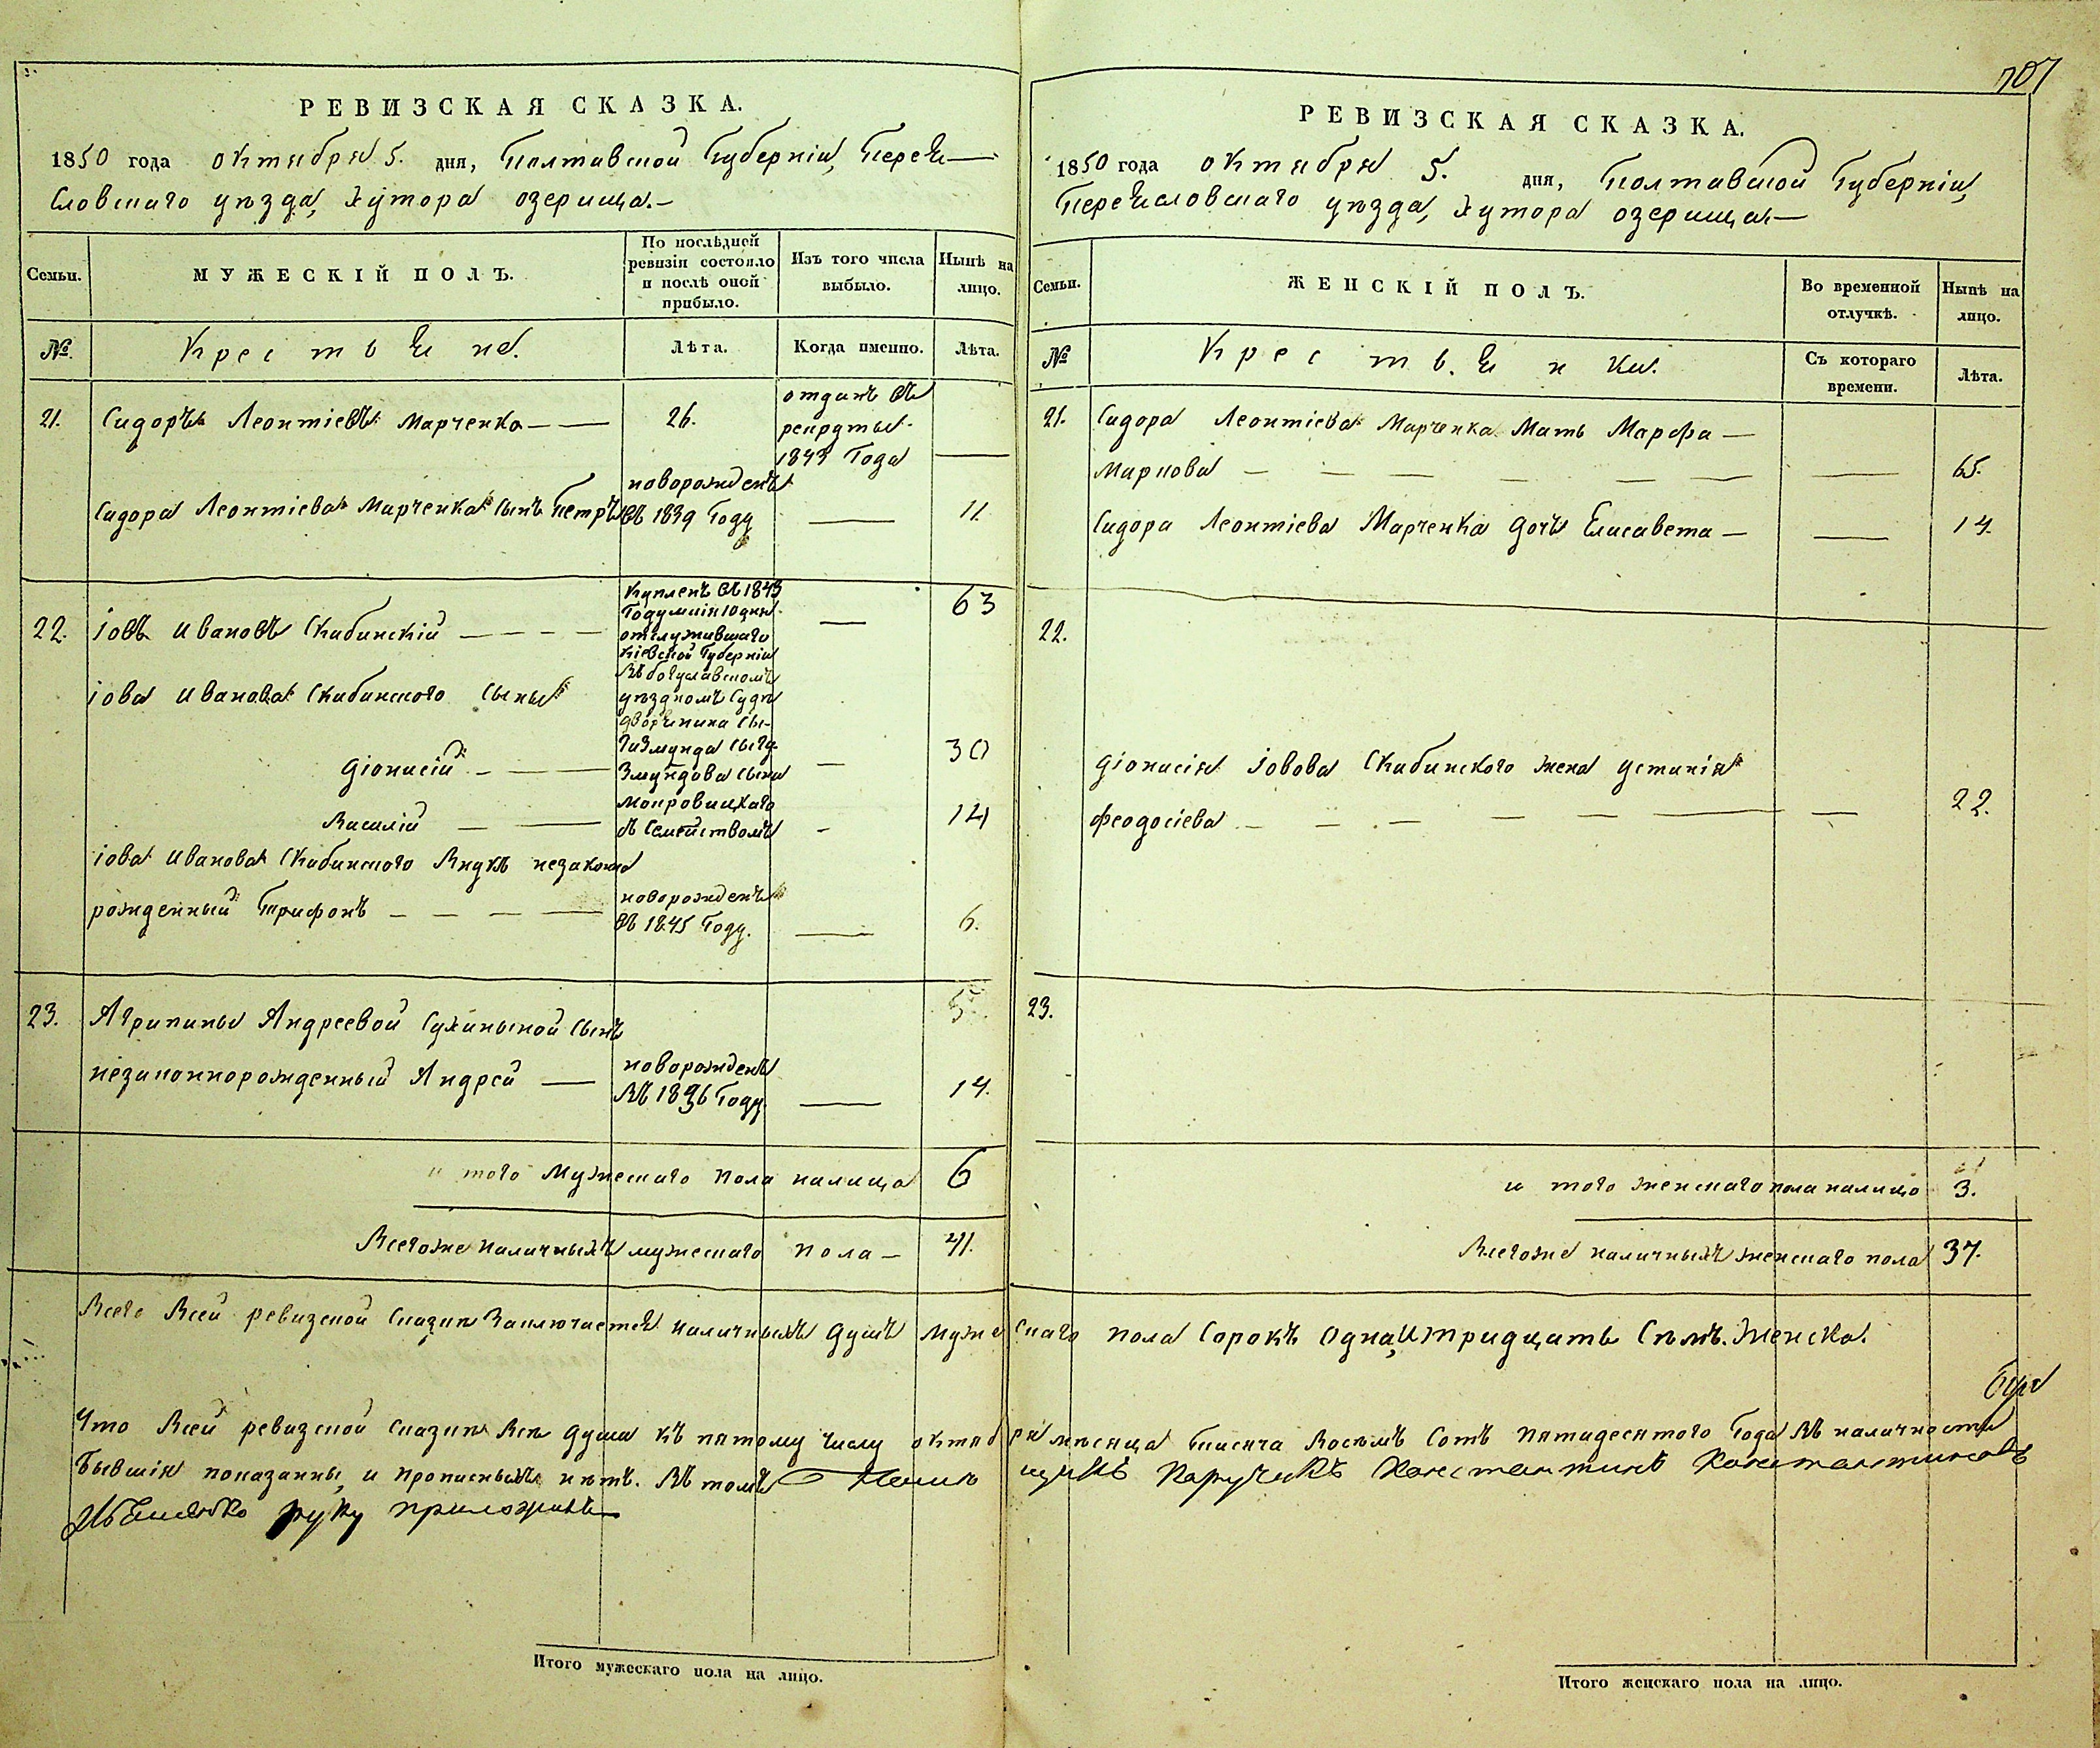 707
РЕВИЗСКАЯ СКАЗКА.
1850 года октября 5. дня, Полтавской Губерніи, Перея—
словскаго уѣзда, хутора озерища.—
Семьи.
МУЖЕСКІЙ ПОЛЪ.
По послѣдней ревизіи состояло и послѣ оной прибыло.
Изъ того числа выбыло.
Нынѣ на лицо.
№.
Крестьяне.
Лѣта.
Когда именно.
Лѣта.
21. Сидоръ Леонтіевъ Марченко — — 26. отданъ въ
рекруты
1843 Года —
новорожденъ
Сидора Леонтіева Марченка сынъ Петръ въ 1839 Году — 11.
22. Іовъ Ивановъ Скибинскій — — — — 63
Іова Иванова Скибинского сыны
Діонисій — — — 30
Василій — — - 14
купленъ въ 1843
Году маія 10 дня
отслужившаго
Кіевской Губерніи
въ богуславскомъ
уѣздномъ Суде
дворянина Си-
гизмунда Сиги-
змундова сына
съ семействомъ
Іова Иванова Скибинского внукъ незаконно
рожденный Трифонъ — — — —
новорожденъ
въ 1845 Году. — 6.
23. Агрипины Андреевой сынъ
незаконнорожденный Андрей —
новорожденъ
въ 1836 Году. — 14.
и того Мужескаго пола налицо 6
Всегоже наличныхъ мужескаго пола — 41.
РЕВИЗСКАЯ СКАЗКА.
1850 года октября 5. дня, Полтавской Губерніи,
Переясловскаго уѣзда, хутора озерища—
Семьи.
ЖЕНСКІЙ ПОЛЪ.
Во временной отлучкѣ.
Нынѣ на лицо.
№
Крестьянки.
Съ котораго времени.
Лѣта.
21. Сидора Леонтіева Марченка Мать Марфа —
Маркова — — — — — — — — 65.
Сидора Леонтіева Марченка дочь Елисавета — — 14.
22.
Діонисія Іовова Скибинского жена Устинія
Феодосіева — — — — — — — 22.
23.
и того женскаго пола налицо 3.
Всегоже наличныхъ женскаго пола 37.
Всего всей ревизской сказке заключается наличныхъ душъ мужескаго пола Сорокъ одна, и тридцать Сѣмъ. Женска.
Что всей ревизской сказке все души къ пятому числу октября мѣсяца Тисяча Восемъ Сотъ пятидесятого Года въ наличности
бывшія показанны, и прописныхъ нѣтъ. въ томъ Помещикъ Паручикъ Константинъ Константиновъ
руку приложилъ
Итого мужескаго пола на лицо.
Итого женскаго пола на лицо.